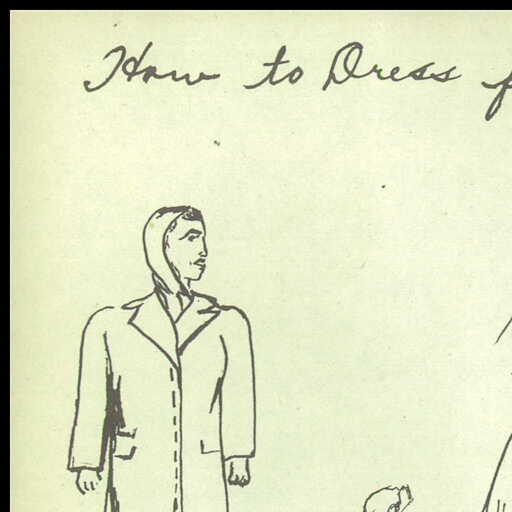 How to Dress f